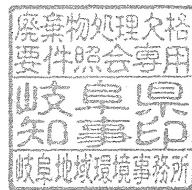 廃棄物処理欠格
要件照会専用
岐阜県
知事印
岐阜地域環境事務所